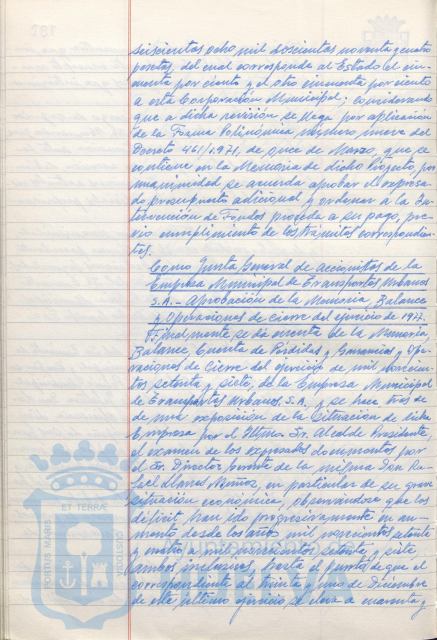 seiscientas ocho mil doscientas noventa y cuatro
pesetas, del cual corresponde al Estado el cin-
cuenta por ciento y el otro cincuenta por ciento
a esta Corporación Municipal; considerando
que a dicha revisión se llega por aplicación
de la Forma Polinómica número nueve del
Decreto 461/1.971, de once de Marzo, que se
contiene en la Memoria de dicho Proyecto, por
unanimidad se acuerda aprobar el expresa-
do presupuesto adicional y ordenar a la In-
tervención de Fondos proceda a su pago, pre-
vio cumplimiento de los trámites correspondien-
tes.
Como Junta General de accionistas de la
Empresa Municipal de Transportes Urbanos
S.A.- Aprobación de la Memoria, Balance
y Operaciones de cierre del ejercicio de 1977.
Finalmente se dá cuenta de la Memoria,
Balance, Cuenta de Pérdidas y Ganancias y Ope-
raciones de Cierre del ejercicio de mil novecien-
tos setenta y siete, de la Empresa Municipal
de Transportes Urbanos, S.A. y se hace tras de
de una exposición de la situación de dicha
Empresa por el Iltmo. Sr. Alcalde Presidente,
el examen de los expresados documentos por
el Sr. Director Gerente de la misma Don Ra-
fael Muñoz, en particular de su grave
situación económica, observándose que los
déficit han ido progresivamente en au-
mento desde los años mil novecientos setenta
y cuatro a mil novecientos setenta y siete
ambos inclusives, hasta el punto de que el
correspondiente al treinta y uno de Diciembre
de este último ejercicio se eleva a cuarenta y
PORTUS MARIS
ET TERRÆ
CUSTODIA